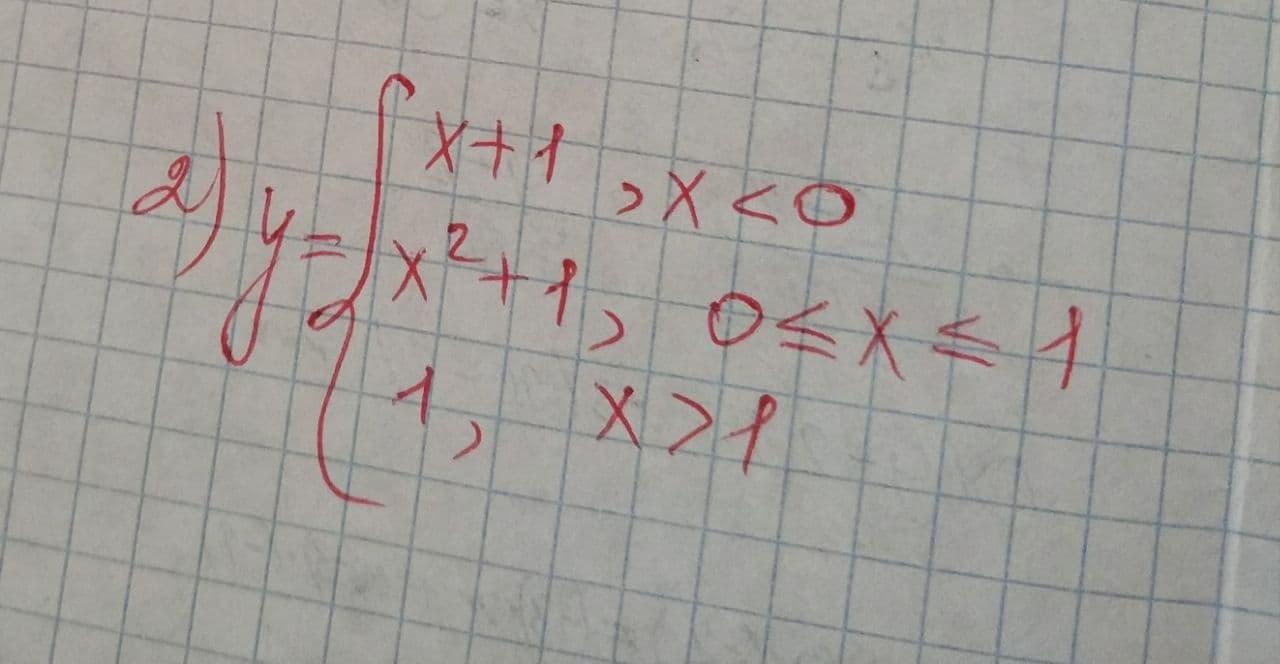 2) y = { x+1 , x < 0
x²+1, 0 ≤ x ≤ 1
1, x > 1